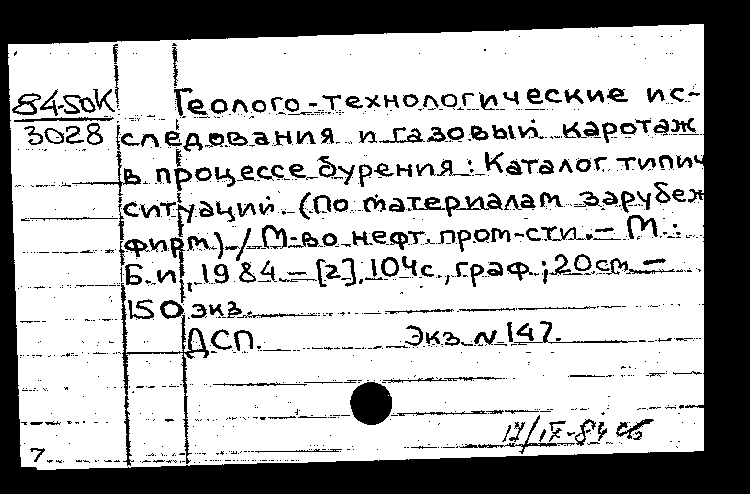 84-SOK
3028
Геолого-технологические ис-
следования и газовый каротаж
в процессе бурения: Каталог типич
ситуаций. (По материалам зарубеж
фирм) / М-во нефт. пром-сти. – М.:
Б.и., 1984. – [2], 104с., граф.; 20см. –
150 экз.
ДСП. Экз. N 147.
17/IX-84
7